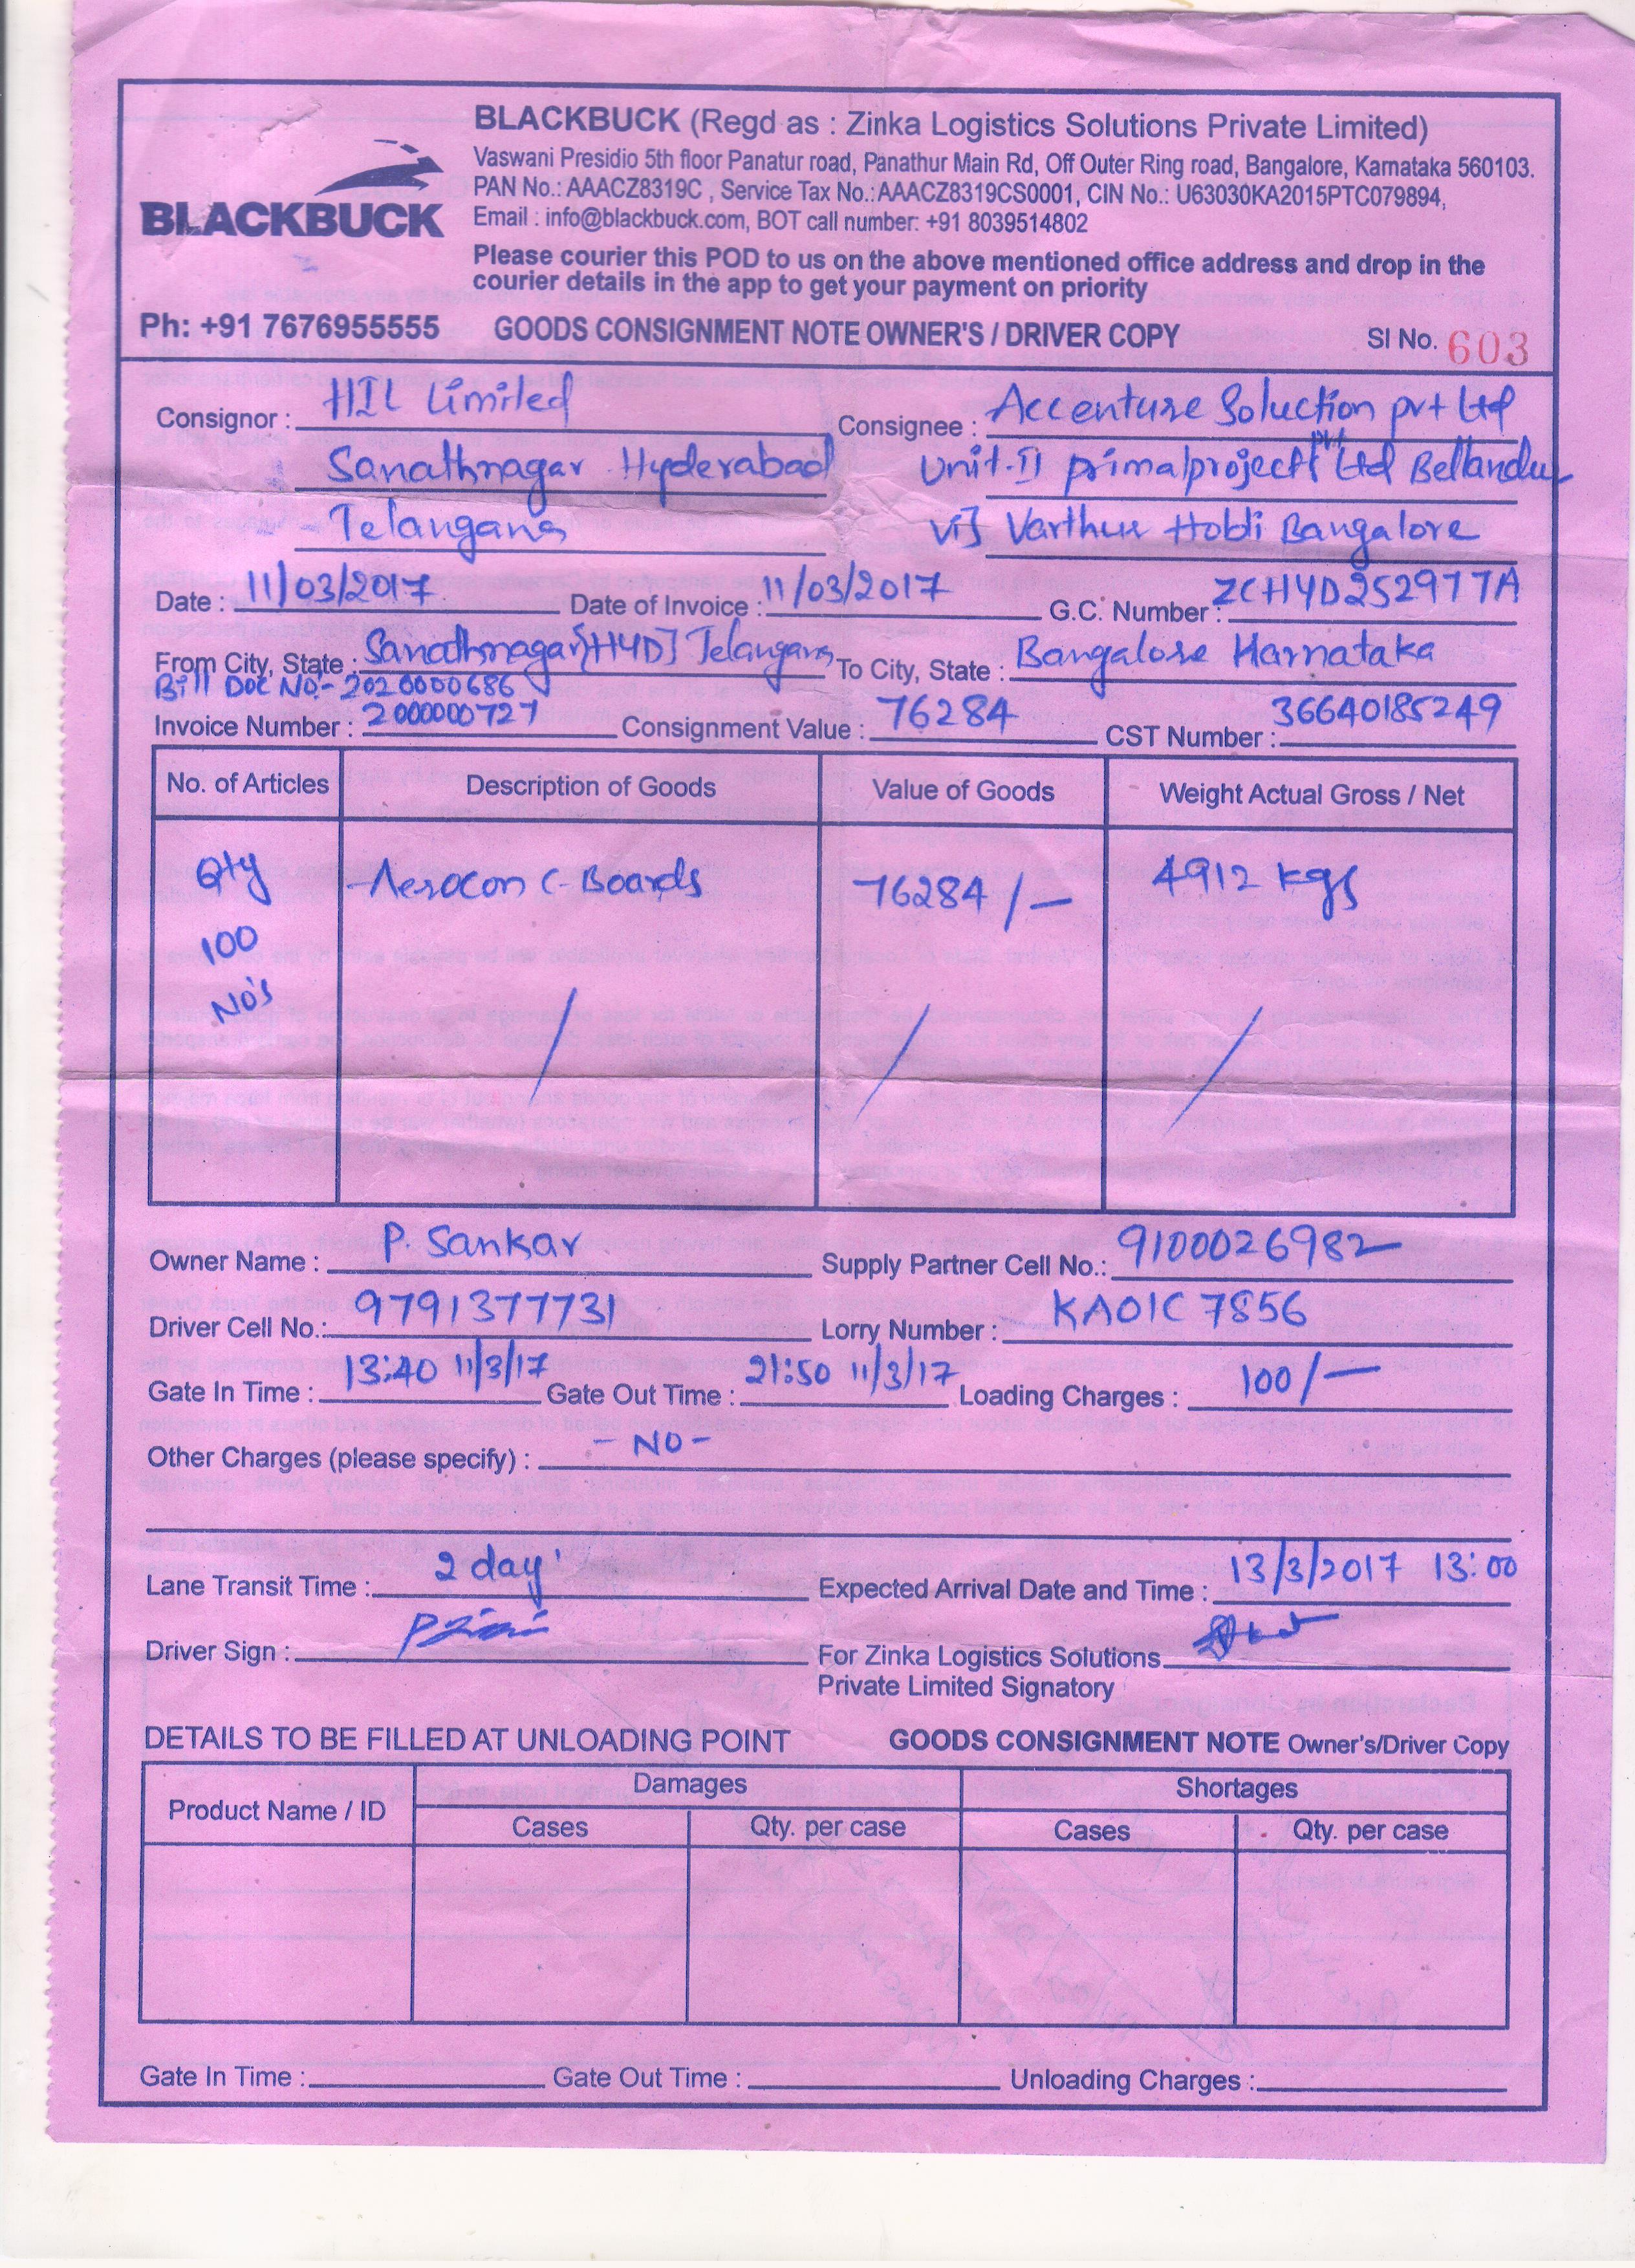 BLACKBUCK
BLACKBUCK (Regd as : Zinka Logistics Solutions Private Limited)
Vaswani Presidio 5th floor Panatur road, Panathur Main Rd, Off Outer Ring road, Bangalore, Karnataka 560103.
PAN No.: AAACZ8319C , Service Tax No.:AAACZ8319CS0001, CIN No.: U63030KA2015PTC079894,
Email : info@blackbuck.com, BOT call number: +91 8039514802
Please courier this POD to us on the above mentioned office address and drop in the
courier details in the app to get your payment on priority
Ph: +91 7676955555 GOODS CONSIGNMENT NOTE OWNER'S / DRIVER COPY SI No. 603
Consignor : HIL Limited Consignee : Accenture Soluction pvt Ltd
Sanathnagar Hyderabad Unit-II primalprojects pvt Ltd Bellandur
Telangana Vij Varthur Hobli Bangalore
Date : 11/03/2017 Date of Invoice : 11/03/2017 G.C. Number : ZCHYD252977A
From City, State : Sanathnagar[HYD] Telangana To City, State : Bangalore Karnataka
Bill Doc No:- 2020000686
Invoice Number : 2000000727 Consignment Value : 76284 CST Number : 36640185249
No. of Articles Description of Goods Value of Goods Weight Actual Gross / Net
Qty Aerocon C-Boards 76284/- 4912 kgs
100
No's
Owner Name : P. Sankar Supply Partner Cell No.: 9100026982
Driver Cell No.: 9791377731 Lorry Number : KA01C 7856
Gate In Time : 13:40 11/3/17 Gate Out Time : 21:50 11/3/17 Loading Charges : 100/-
Other Charges (please specify) : - NO -
Lane Transit Time : 2 day' Expected Arrival Date and Time : 13/3/2017 13:00
Driver Sign : For Zinka Logistics Solutions
Private Limited Signatory
DETAILS TO BE FILLED AT UNLOADING POINT GOODS CONSIGNMENT NOTE Owner's/Driver Copy
Product Name / ID Damages Shortages
Cases Qty. per case Cases Qty. per case
Gate In Time : Gate Out Time : Unloading Charges :